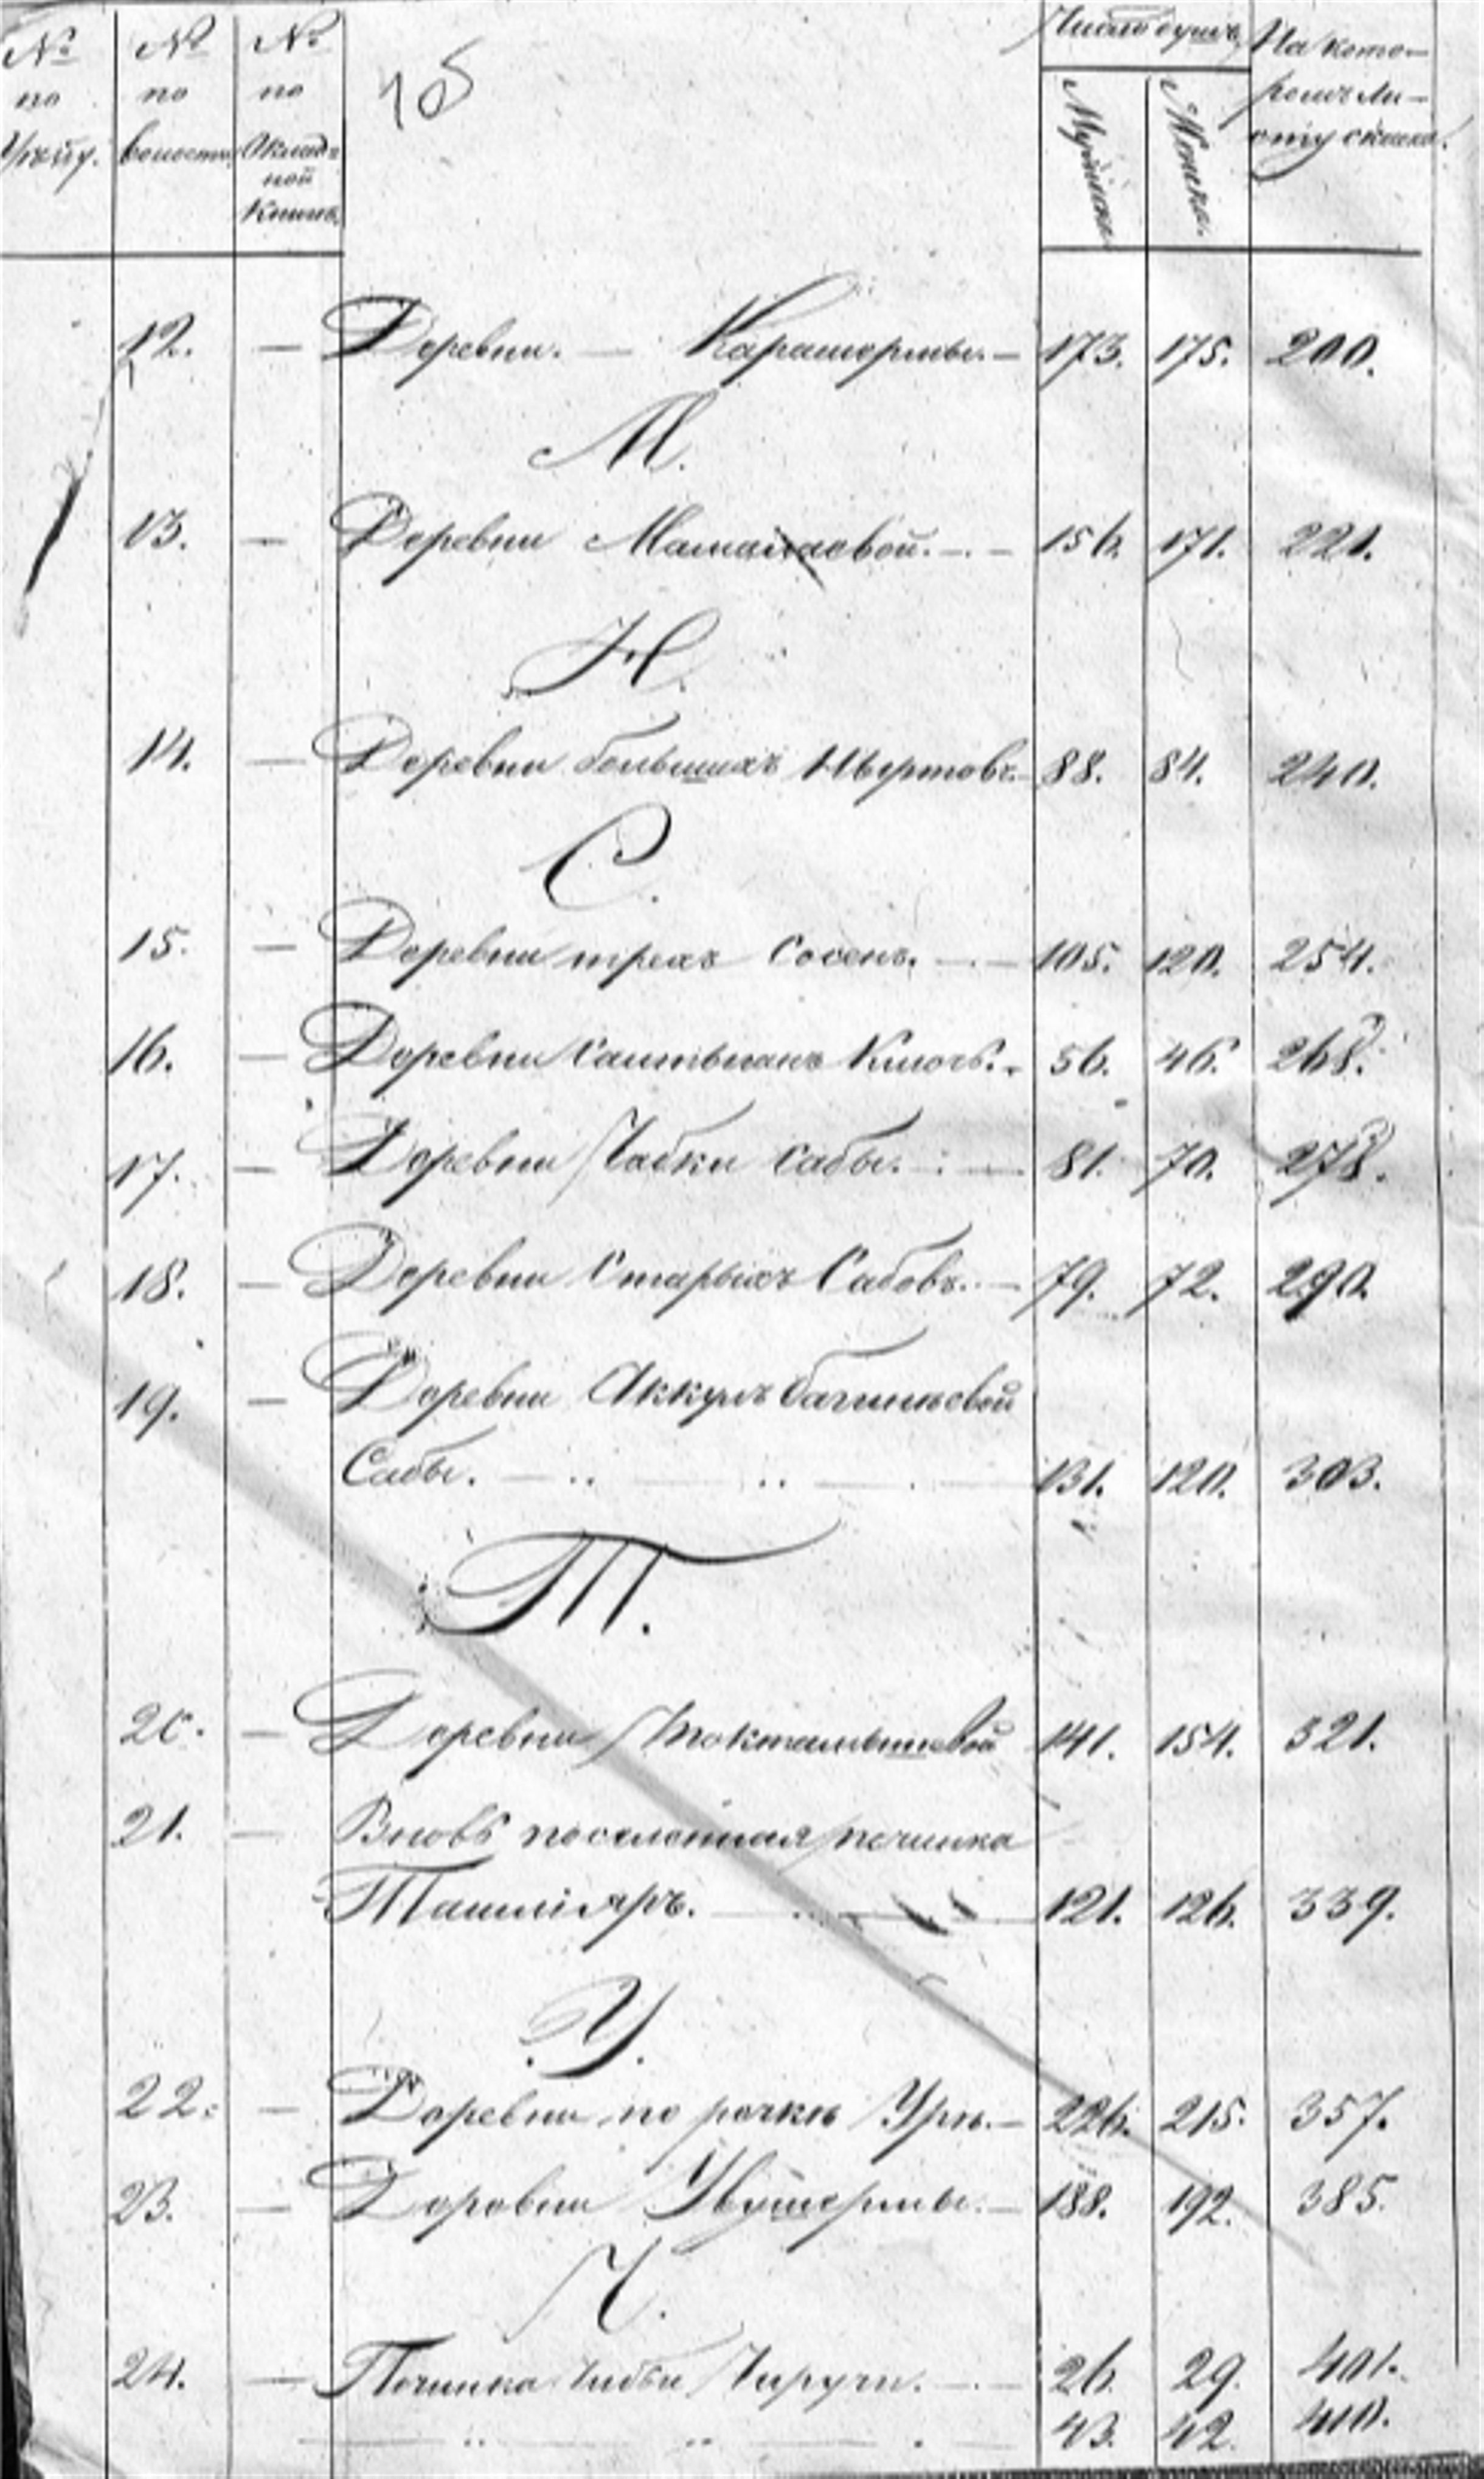 № по Уѣзду. № по волости. № по Окладной Книгѣ. Число душъ На которомъ листу сказка.
Мужеска. Женска.
12. — Деревни. — Карашермы. — 173. 175. 200.
М.
13. — Деревни Мамалаевой. — 156. 171. 221.
Н.
14. — Деревни большихъ Ныртовъ. 88. 84. 240.
С.
15. — Деревни трехъ Сосенъ. — 105. 120. 254.
16. — Деревни Саитьманъ Ключь. 56. 46. 268.
17. — Деревни Чабки Сабы. — 81. 70. 278.
18. — Деревни Старыхъ Сабовъ. — 79. 72. 290.
19. — Деревни Аккулъ багишевой
Сабы. — 131. 120. 303.
Т.
20. — Деревни Токтамышевой 141. 154. 321.
21. — Вновь поселенная починка
Ташлiяръ. — 121. 126. 339.
У.
22. — Деревни по рѣчкѣ Урѣ. — 226. 215. 357.
23. — Деревни Увушермы. — 188. 192. 385.
Ч.
24. — Починка Чибьи Чиручи. — 26. 29. 401.
43. 42. 410.